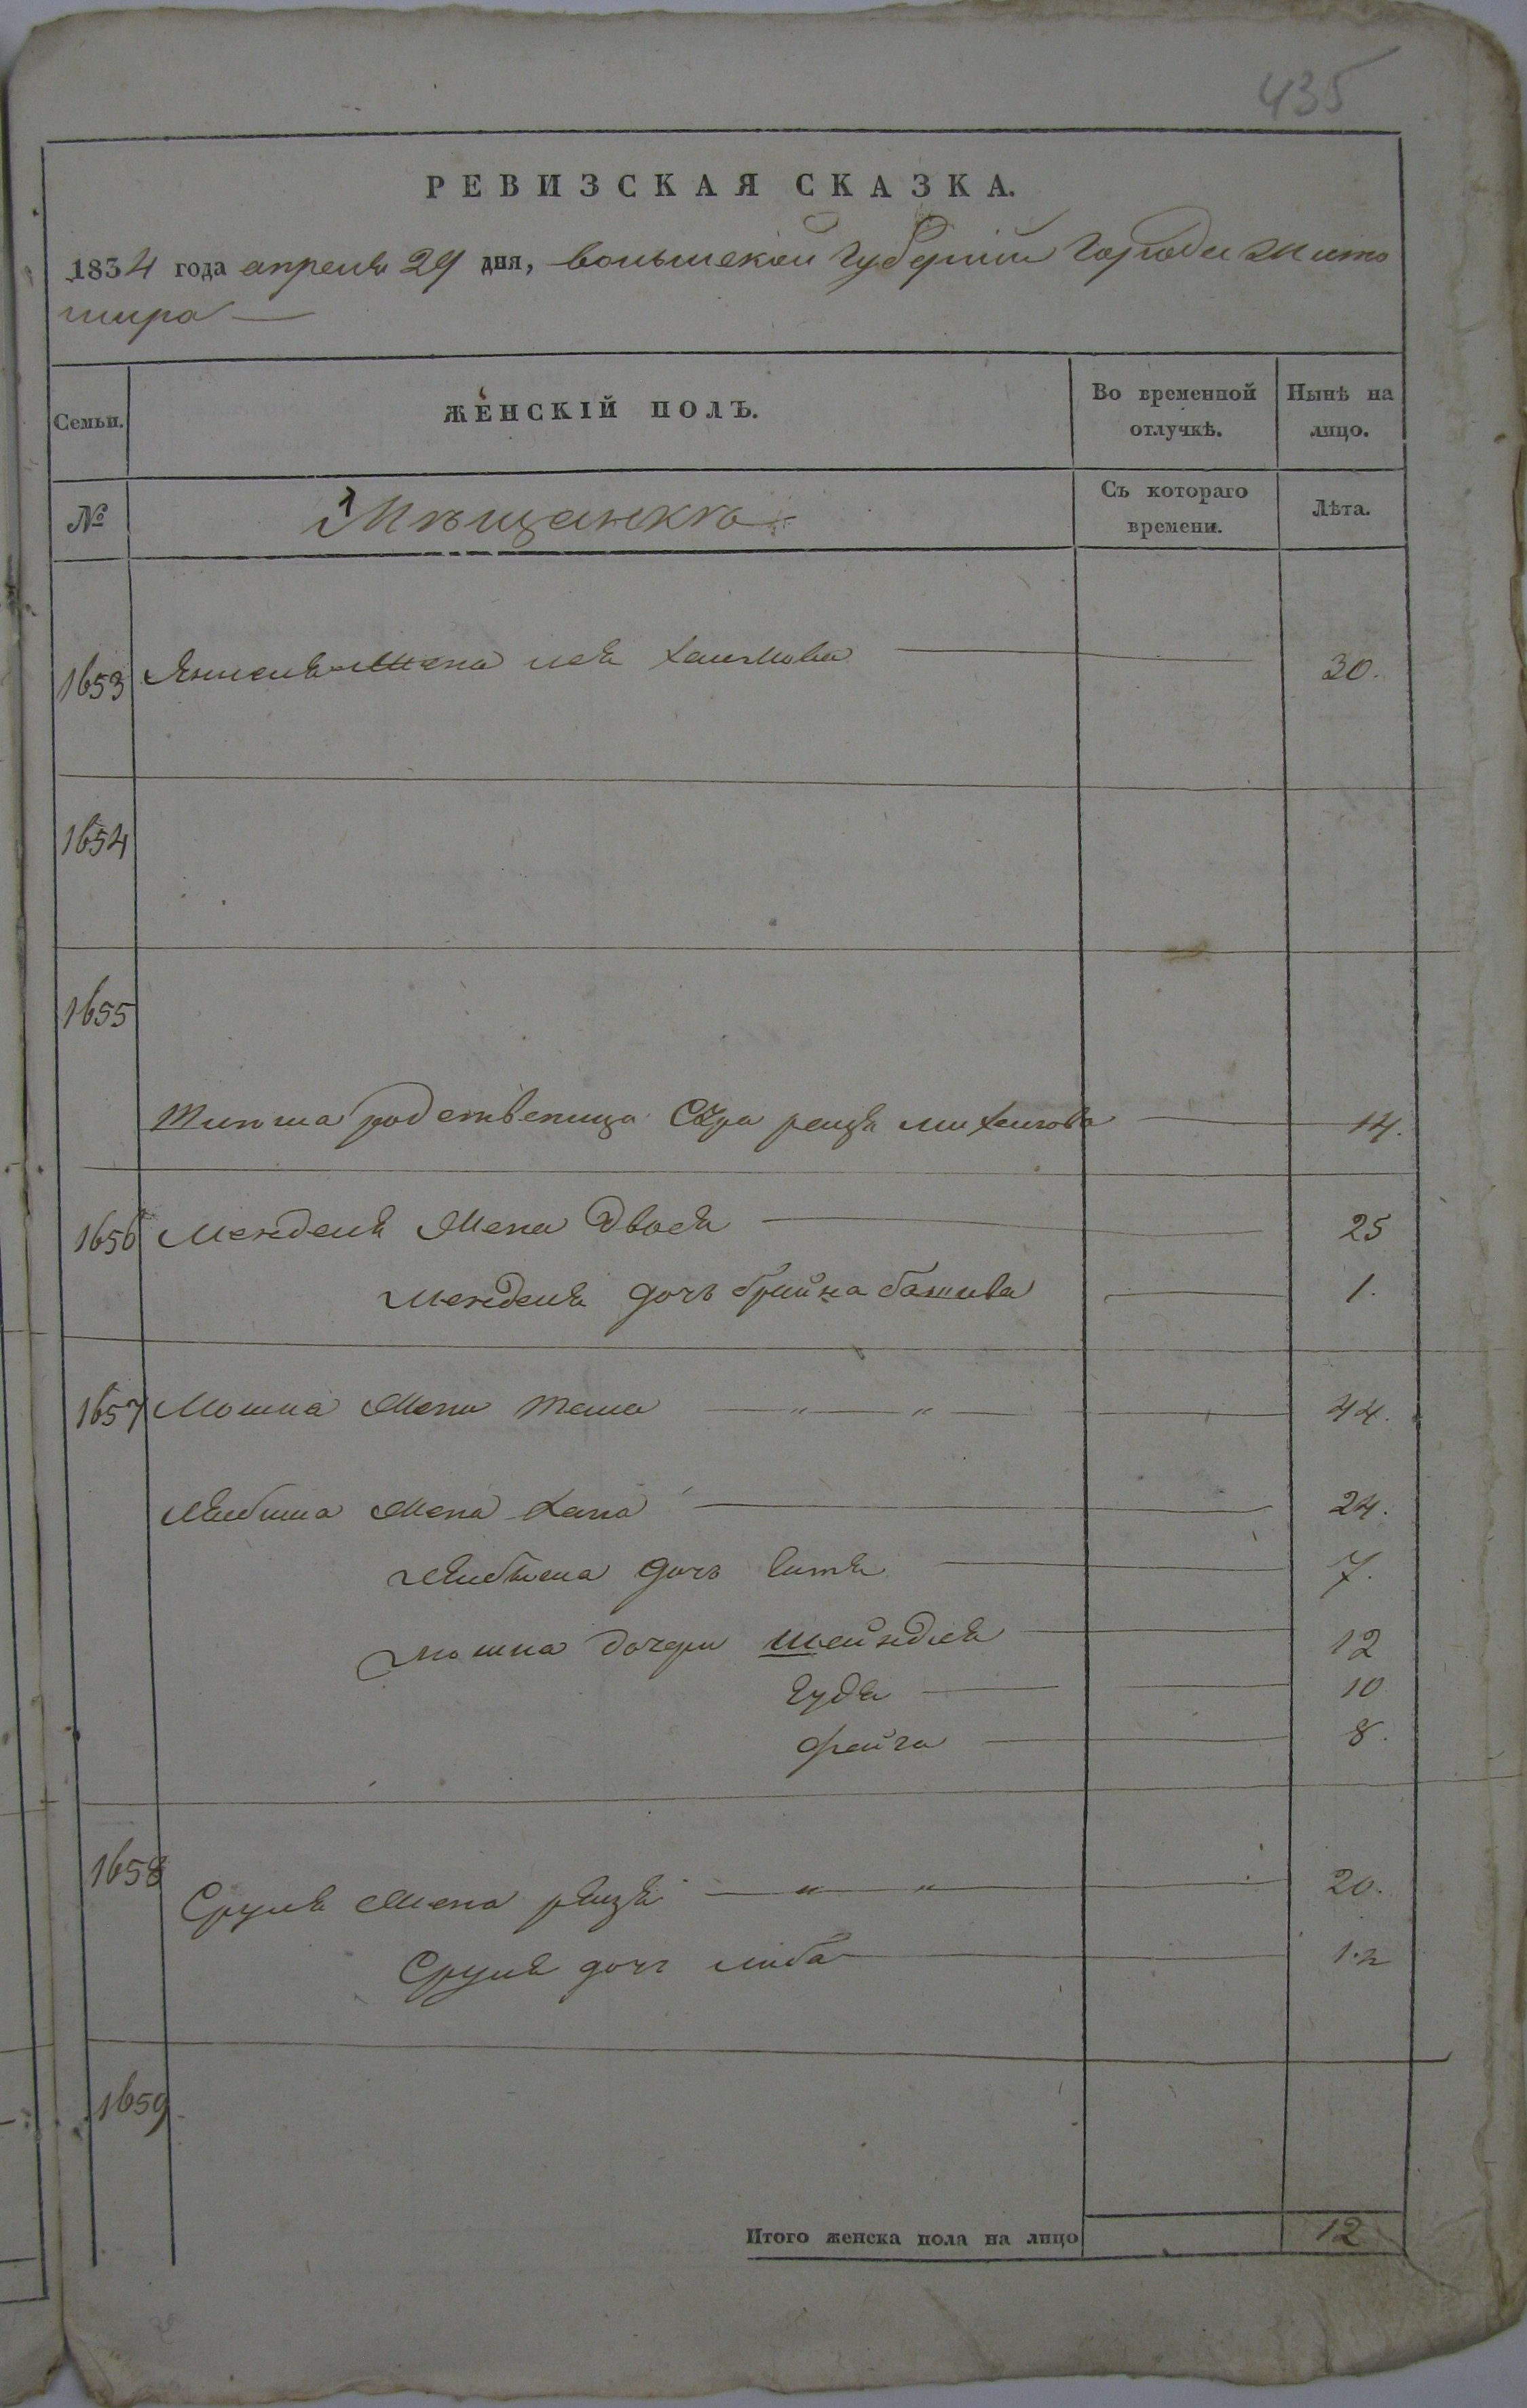 435
РЕВИЗСКАЯ СКАЗКА.
1834 года апреля 29 дня, волынской губернии города Жито
мира
Семьи. ЖЕНСКІЙ ПОЛЪ. Во временной отлучкѣ. Нынѣ на лицо.
№ Мѣщанкѣ Съ котораго времени. Лѣта.
1653 Янкеля жена лея Хаимова 30.
1654
1655
родственица Сура рейзя 14.
1656 Менделя жена Двося 25
Менделя дочь брайна башива 1.
1657 Мошка жена 44.
Лейбиша жена Хана 24.
Лейбиша дочь 7.
мошка дочери шейндля 12
Гудя 10
фейга 8.
1658 Сруля жена рейзя 20.
Сруля дочь либа
1659
Итого женска пола на лицо 12